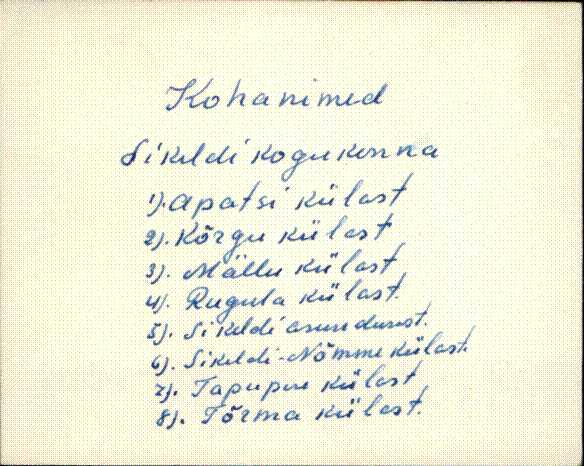 Kohanimed
Sikeldi kogukonna
1). Apatsi külast
2). Kõrgu külast
3). Mällu külast
4). Rugula külast.
5). Sikeldi asundusest.
6). Sikeldi-Nõmme külast.
7). Tapupere külast
8). Tõrma külast.